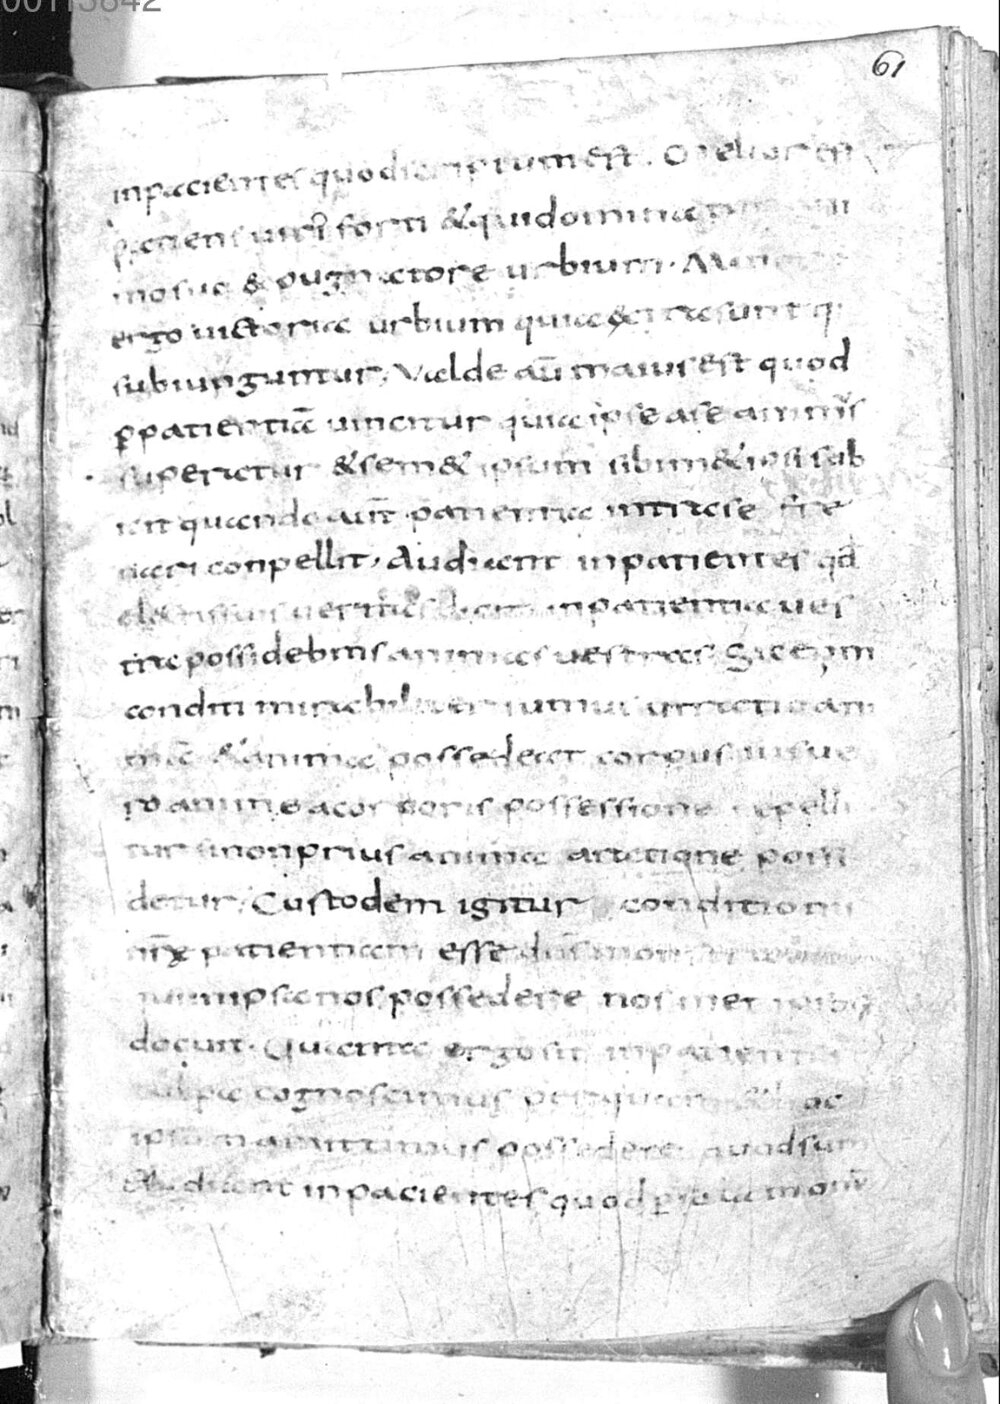 00113842
61
inpacientes quod scriptum est. Melior est
patiens uiro forti & qui dominatur
mo suo & pugnatore urbium. Minor
ergo uictoria urbium quia extra sunt q
subiunguntur; Valde aū maius est quod
ꝑ patientiā uincitur quia ipse a se animus
superatur & sem& ipsum sibim& ipsi sub
icit quando aūt patientia intra se fre
nari conpellit; Audiant inpatientes qđ
electis suis ueritas dicit in patientia ues
tra possidebitis animas uestras. Sic enim
conditi mirabiliter sumus ut ratio ani
mā & anima possedeat corpus ius ue
ro anime a corporis possessione repelli
tur si non prius anima a ratione possi
detur; Custodem igitur conditionis
nr̄ę patientiam esse dn̄s monstrauit
in ipsa nos possedere nosmet ipsos
docuit. Quanta ergo sit inpatientiae
culpa cognoscimus per quam & hoc
ipsum amittimus possedere quod sum
Audiant inpacientes quod ꝑ salamonē